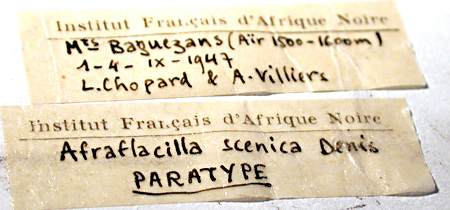 Institut Français d'Afrique Noire
Mts Baguezans (Aïr 1500-1600m)
1-4-IX-1947
L.Chopard & A.Villiers
Institut Français d'Afrique Noire
Afraflacilla scenica Denis
PARATYPE